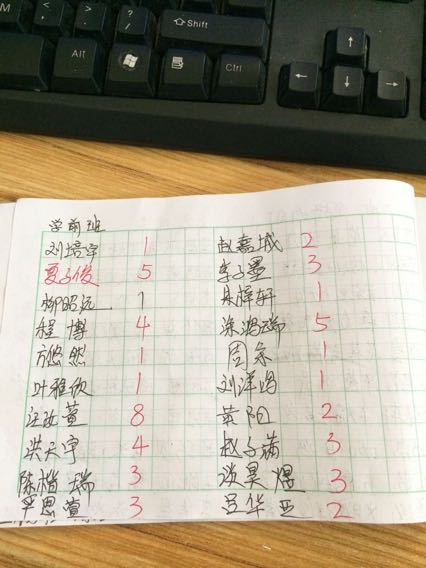 M < > ? Shift
Alt Ctrl
学前班
刘培宇 1 赵嘉城 2
夏子俊 5 李子墨 3
柳昭远 1 吴泽轩 1
程博 4 涂鸿瑞 5
万悠然 1 周余 1
叶雅欣 1 刘洋鸿 1
汪政萱 8 黄阳 2
洪天宇 4 赵子涵 3
陈楷瑞 3 谈昊煜 3
严思萱 3 吕华亚 2